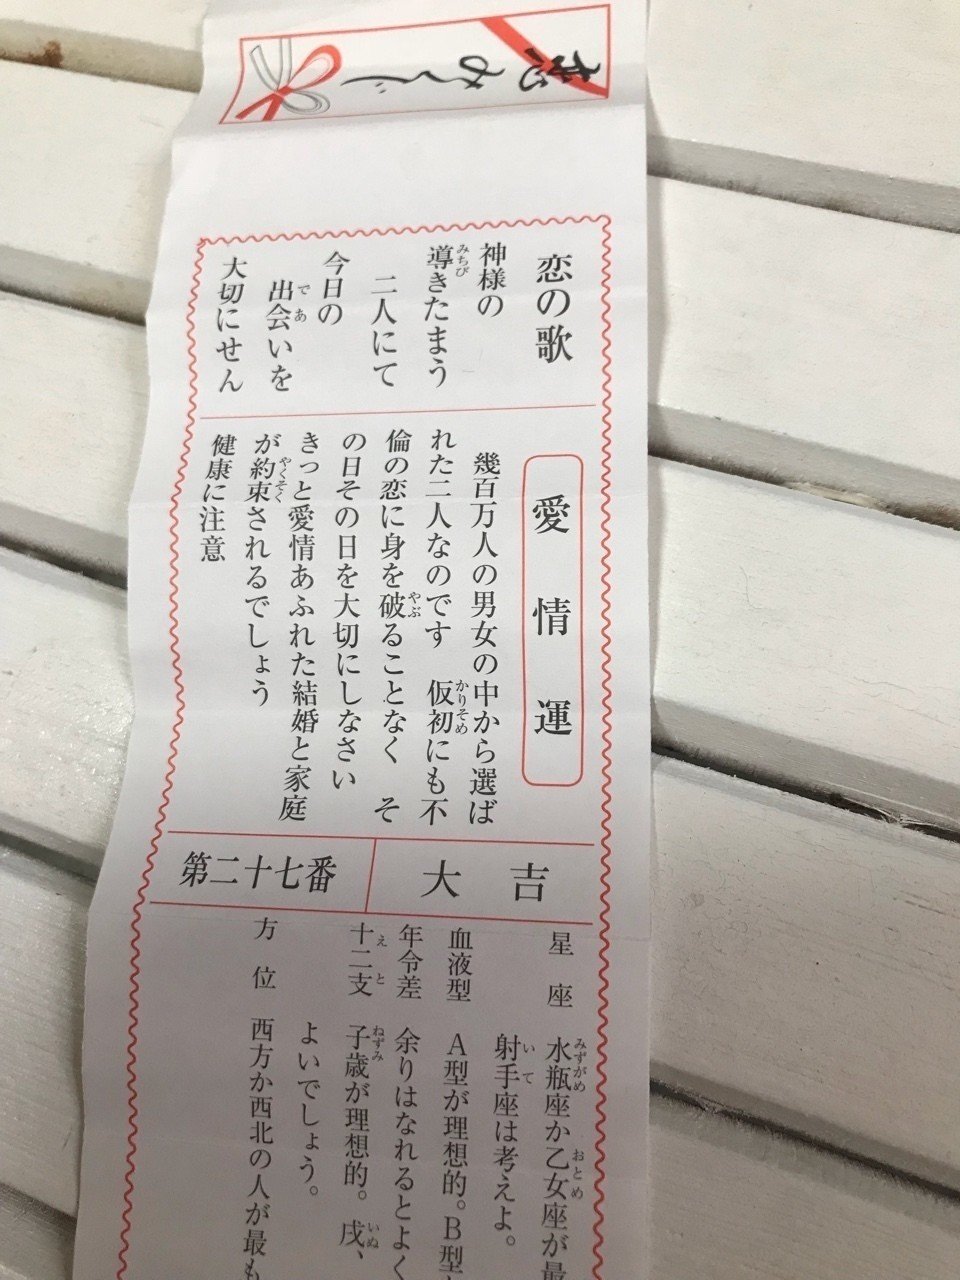 恋の歌
神様の
導きたまう
二人にて
今日の
出会いを
大切にせん
愛情運
幾百万人の男女の中から選ば
れた二人なのです　仮初にも不
倫の恋に身を破ることなく　そ
の日その日を大切にしなさい
きっと愛情あふれた結婚と家庭
が約束されるでしょう
健康に注意
大吉
第二十七番
星座　水瓶座か乙女座が最
射手座は考えよ。
血液型　A型が理想的。B型
年令差　余りはなれるとよく
十二支　子歳が理想的。戌、
よいでしょう。
方位　西方か西北の人が最も